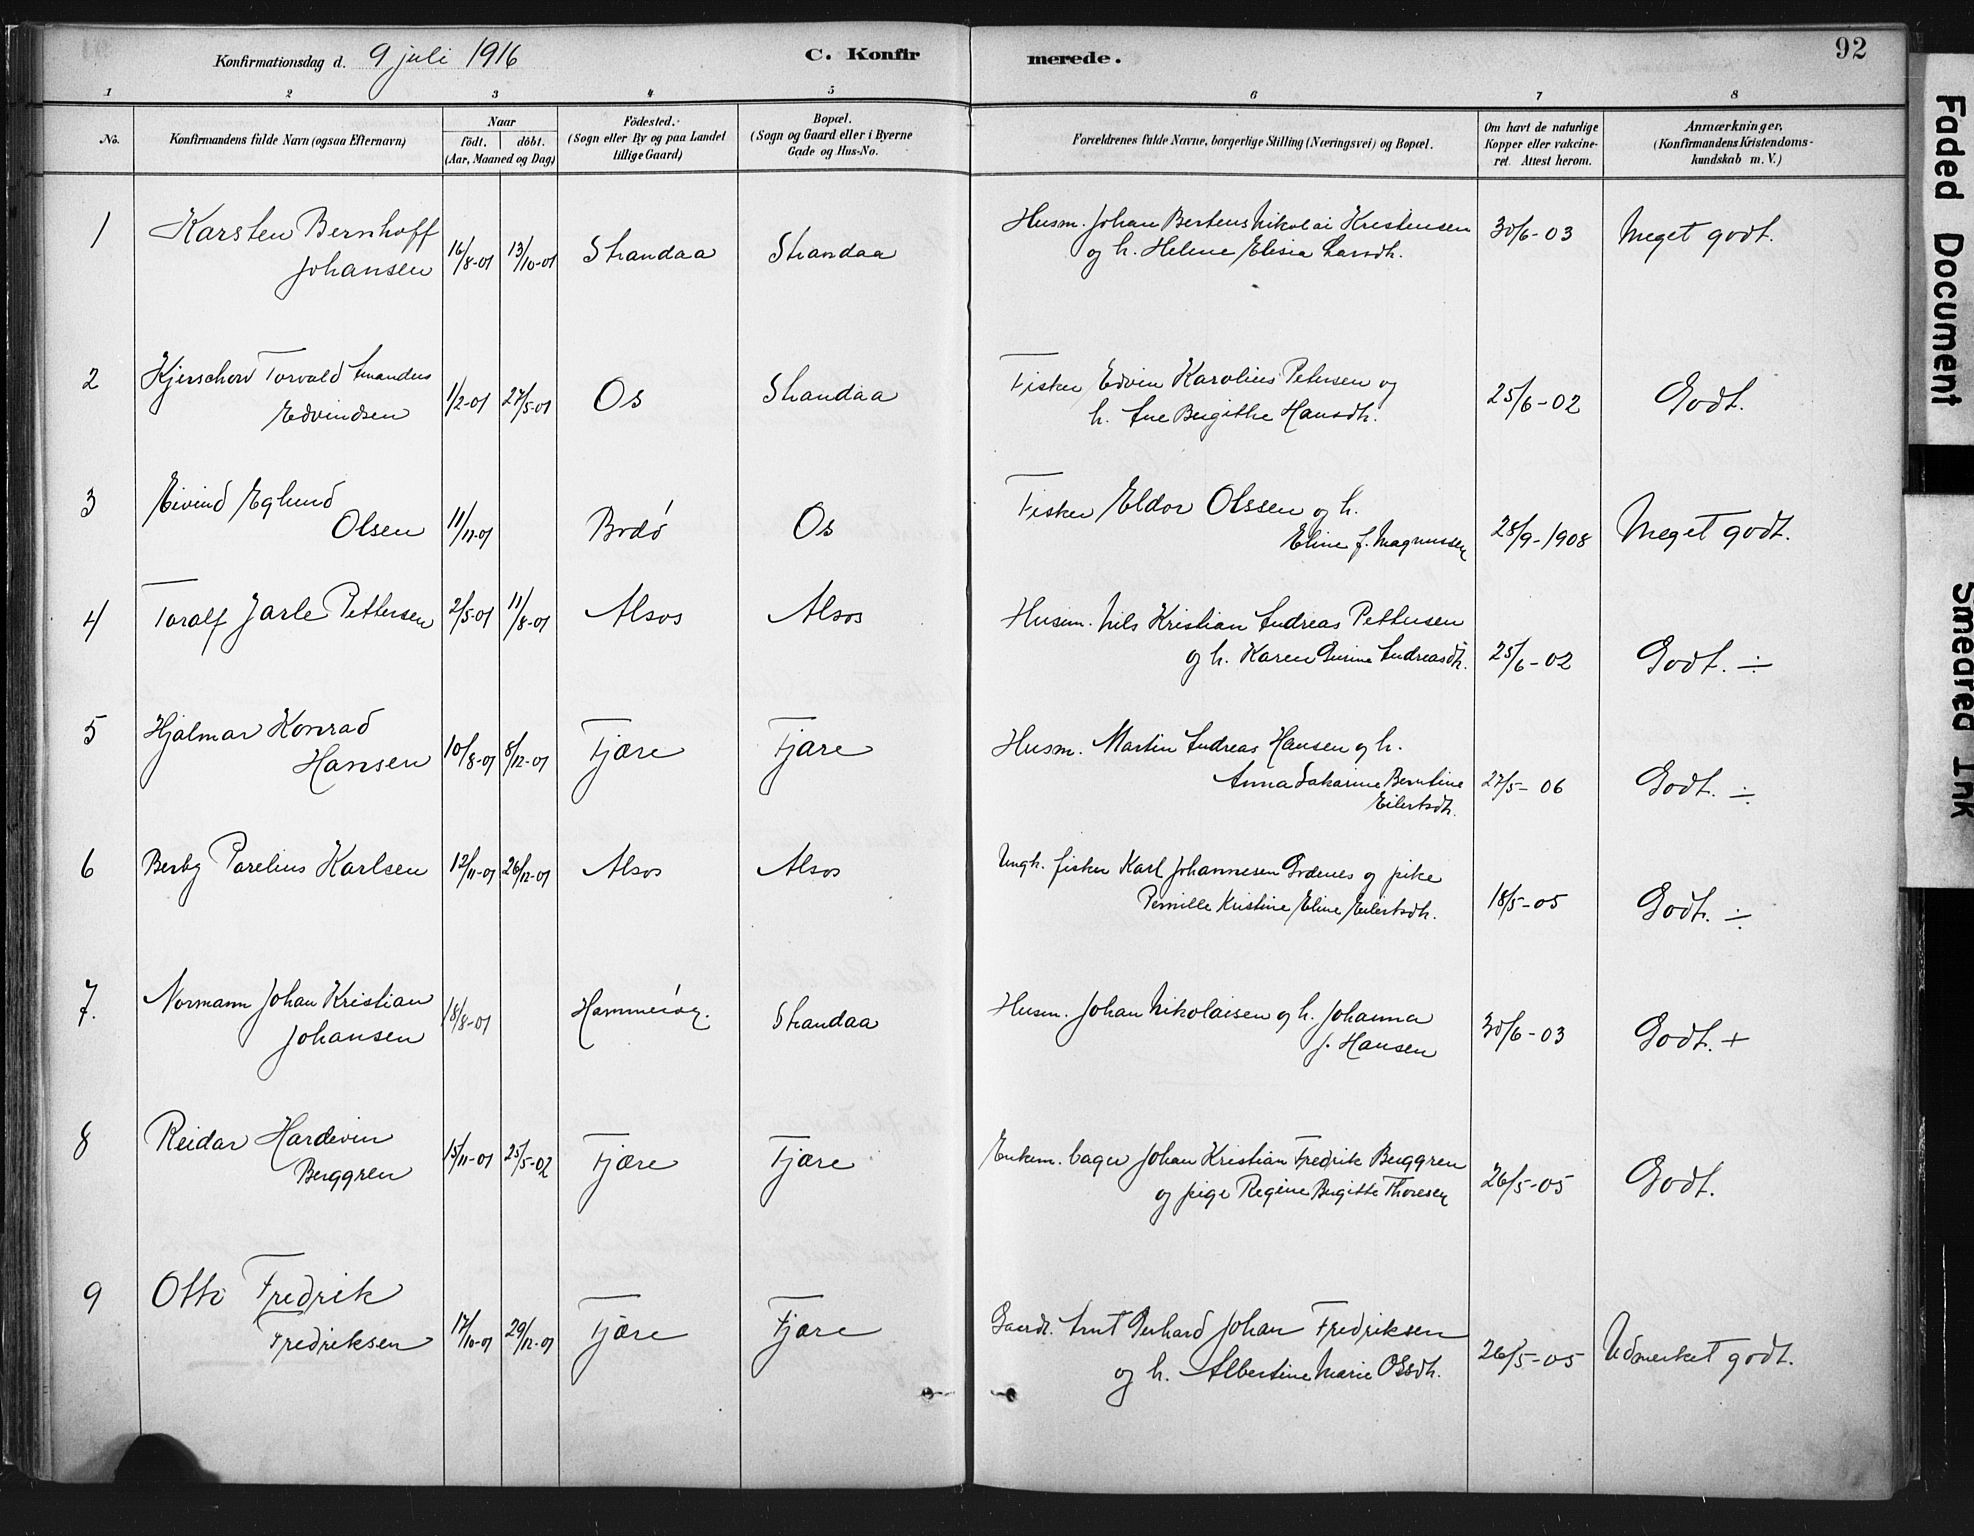 Konfirmationsdag d. 9 juli 1916
C. Konfirmerede.
92
1 2 3 4 5 6 7 8
No.
Konfirmandens fulde Navn (ogsaa Efternavn)
Naar
födt. döbt.
(Aar, Maaned og Dag)
Födested.
(Sogn eller By og paa Landet
tillige Gaard)
Bopæl.
(Sogn og Gaard eller i Byerne
Gade og Hus-No.
Forældrenes fulde Navne, borgerlige Stilling (Næringsvei) og Bopæl.
Om havt de naturlige
Kopper eller vakcine-
ret. Attest herom.
Anmærkninger,
(Konfirmandens Kristendoms-
kundskab m. V.)
1 Karsten Bernhoff
Johansen 16/8-01 13/10-01 Strandaa Strandaa
Husm. Johan Bertens Nikolai Kristensen 30/6-03 Meget godt.
og h. Helene Elisia Larsdt.
2 Kjerschow Torvald Amandus
Edvindsen 1/2-01 27/5-01 Os Strandaa
Fisker Edvin Karolius Petersen og 25/6-02 Godt.
h. Ane Birgithe Hansdt.
3 Eivind Eglund
Olsen 11/11-01 Bodø Os
Fisker Eldor Olssen og h.
Eline f. Magnussen 28/9-1908 Meget godt.
4 Toralf Jarle Pettersen 2/5-01 11/8-01 Alsos Alsos
Husm. Nils Kristian Andreas Pettersen
og h. Karen Gurine Andreasdt. 25/6-02 Godt. ÷
5 Hjalmar Konrad
Hansen 10/8-01 8/12-01 Fjære Fjære
Husm. Martin Andreas Hansen og h.
Anna Sakarine Berntine 27/5-06 Godt. ÷
Eilertsdt.
6 Berby Parelius Karlsen 12/11-01 26/12-01 Alsos Alsos
Ungk. fisker Karl Johannesen Godenes og pike
Pernille Kristine Eline Eilertsdt. 18/5-05 Godt. ÷
7. Normann Johan Kristian
Johansen 18/8-01 Hammerøy. Strandaa
Husm. Johan Nikolaisen og h. Johanna 30/6-03 Godt. +
f. Hansen
8 Reidar Hardevin
Berggren 15/11-01 25/5-02 Fjære Fjære
Enkem. bager Johan Kristian Fredrik Berggren
og pige Regine Birgitte Thoresen 26/5-05 Godt.
9 Otto Fredrik
Fredriksen 17/10-01 29/12-01 Fjære Fjære
Gaardr. Arnt Gerhard Johan Fredriksen
og h. Albertine Marie Olsdt. 26/5-05 Udmerket godt.
Faded Document
Smeared Ink